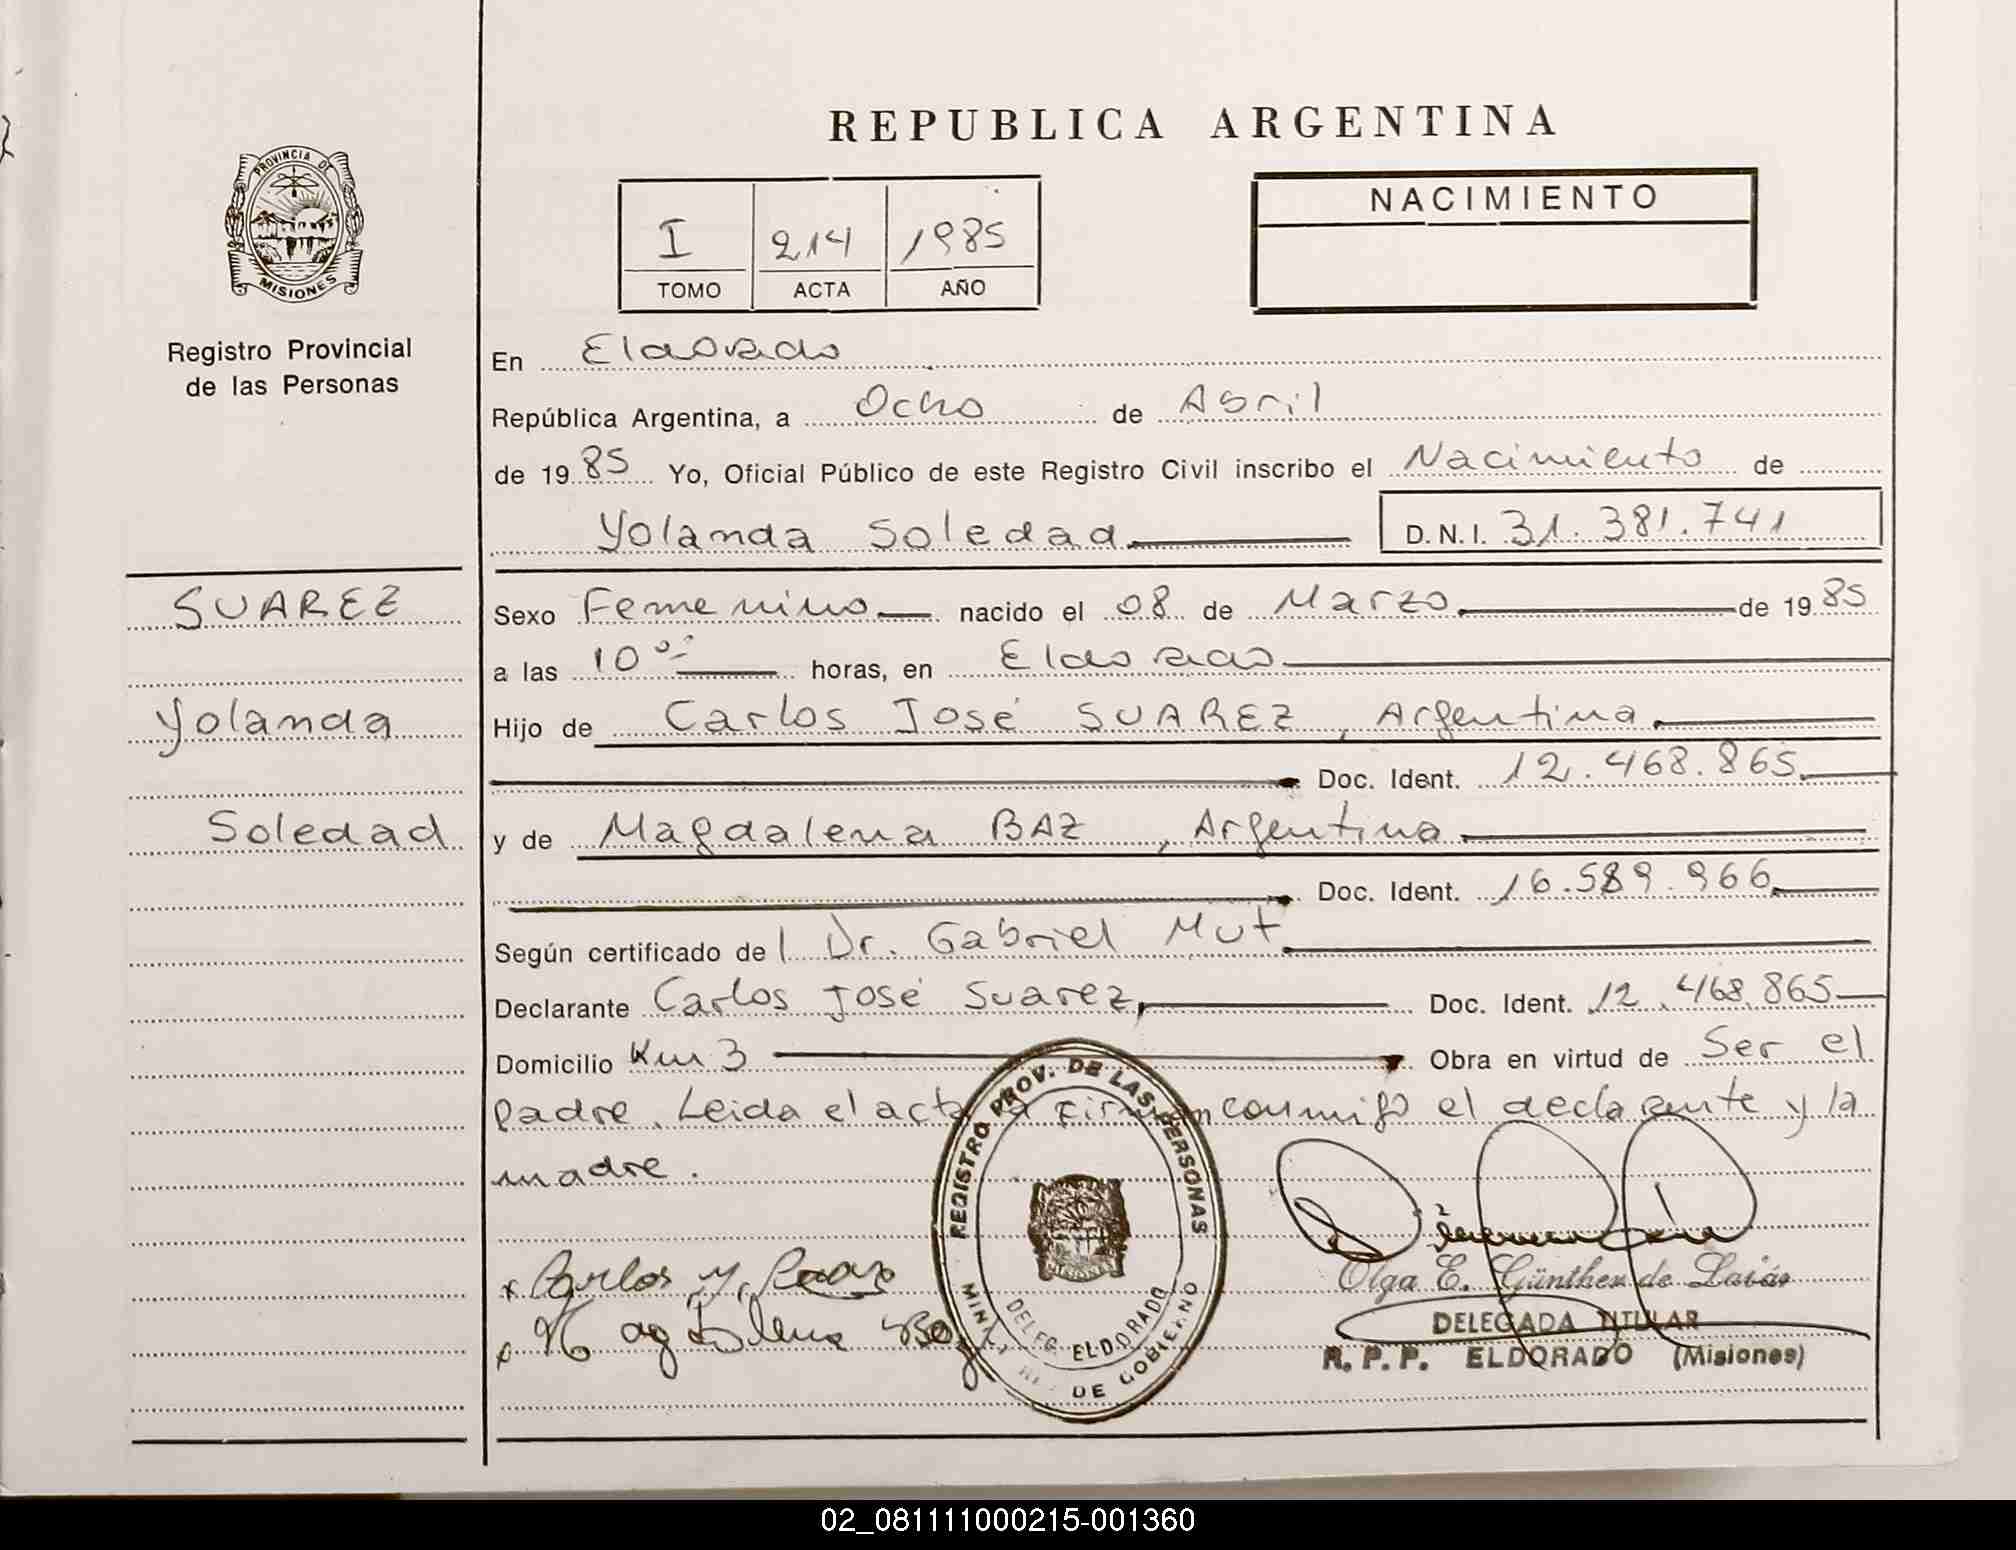 REPUBLICA ARGENTINA
PROVINCIA DE
MISIONES
Registro Provincial
de las Personas
I 214 1985
TOMO ACTA AÑO
NACIMIENTO
En Eldorado
República Argentina, a Ocho de Abril
de 1985 Yo, Oficial Público de este Registro Civil inscribo el Nacimiento de
Yolanda Soledad D.N.I. 31.381.741
SUAREZ
Yolanda
Soledad
Sexo Femenino nacido el 08 de Marzo de 1985
a las 10 horas, en Eldorado
Hijo de Carlos José SUAREZ, Argentina
Doc. Ident. 12.468.865
y de Magdalena BAZ, Argentina
Doc. Ident. 16.589.966
Según certificado del Dr. Gabriel Mut
Declarante Carlos José Suarez, Doc. Ident. 12.468.865
Domicilio Km 3 Obra en virtud de Ser el
padre. Leida el acta la firman conmigo el declarante y la
madre.
REGISTRO PROV. DE LAS PERSONAS
DE GOBIERNO
DELEG. ELDORADO
Carlos
Magdalena Baz
Olga E. Günther de Laiás
DELEGADA TITULAR
R. P. P. ELDORADO (Misiones)
02_081111000215-001360